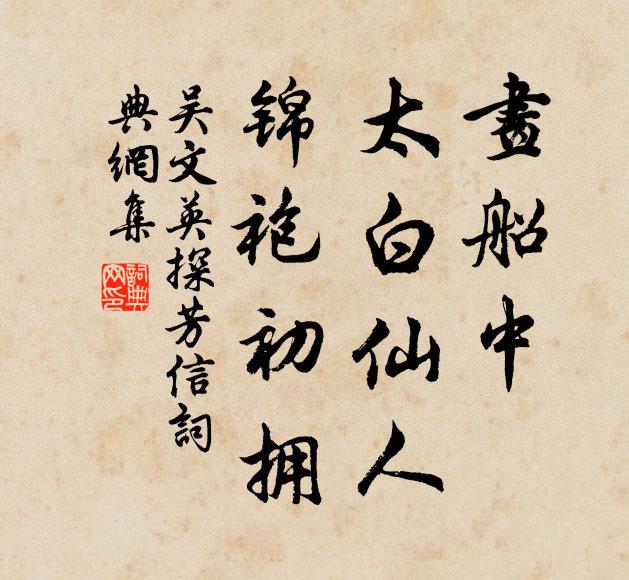 畫船中
太白仙人
錦袍初拥
吴文英探芳信詞
典網集
詞典网印